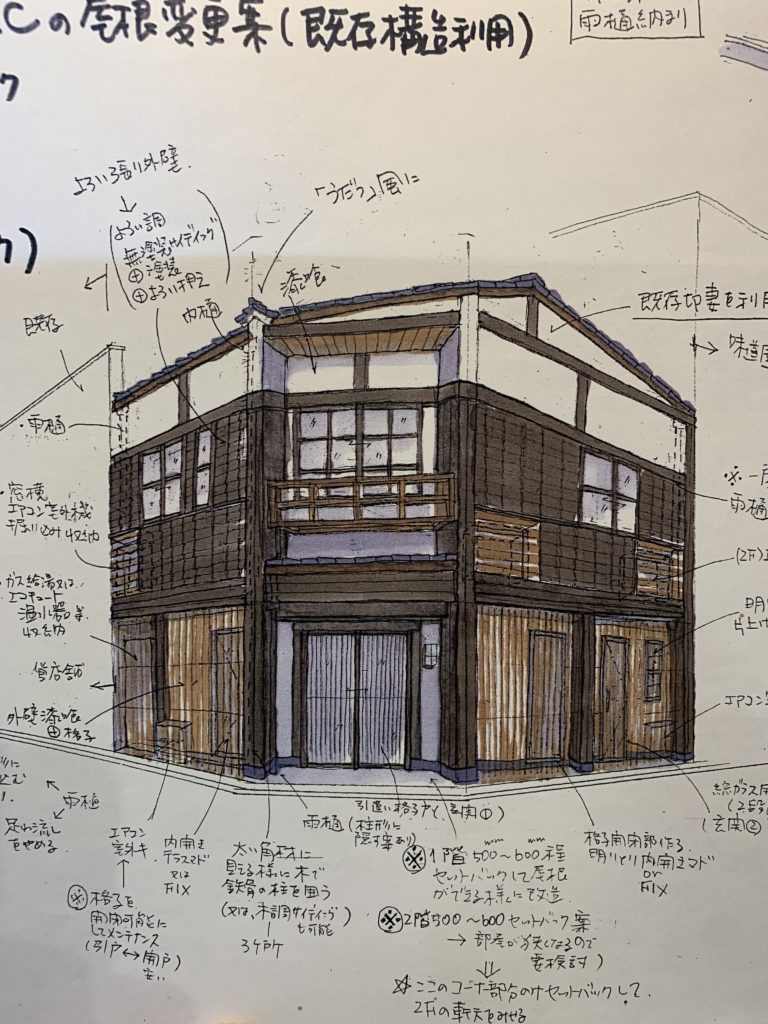 Cの屋根変更案(既存構造利用)
雨樋納まり
ク
よろい張り外壁
よろい調
無塗装サイディング
⊕塗装
⊕よろい押え
「うだつ」風に
漆喰
内樋
既存
既存切妻を利用
雨樋
窓横
エアコン室外機
掘り込み収納
ガス給湯又は
エコキュート
収納
貸店舗
外壁漆喰
⊕格子
雨樋
(2F)
エアコン
雨樋
をやめる
エアコン
室外キ
内開き
テラスマド
又は
FIX
太い角材に
見える様に木で
鉄骨の柱を囲う
(又は、木調サイディングも可能)
3ヶ所
雨樋(柱形に
隠す案あり)
引違い格子戸と、玄関①
※1階500〜600程
セットバックして屋根
ができる様に改造
※2階500〜600セットバック案
→部屋が狭くなるので
要検討)
☆ここのコーナー部分のみセットバックして、
2Fの軒天をみせる
格子開閉部作る
明りとり内開きマド
or
FIX
総ガラス
(2段
玄関②
※格子を
開閉可能に
してメンテナンス
(引戸↔開戸)